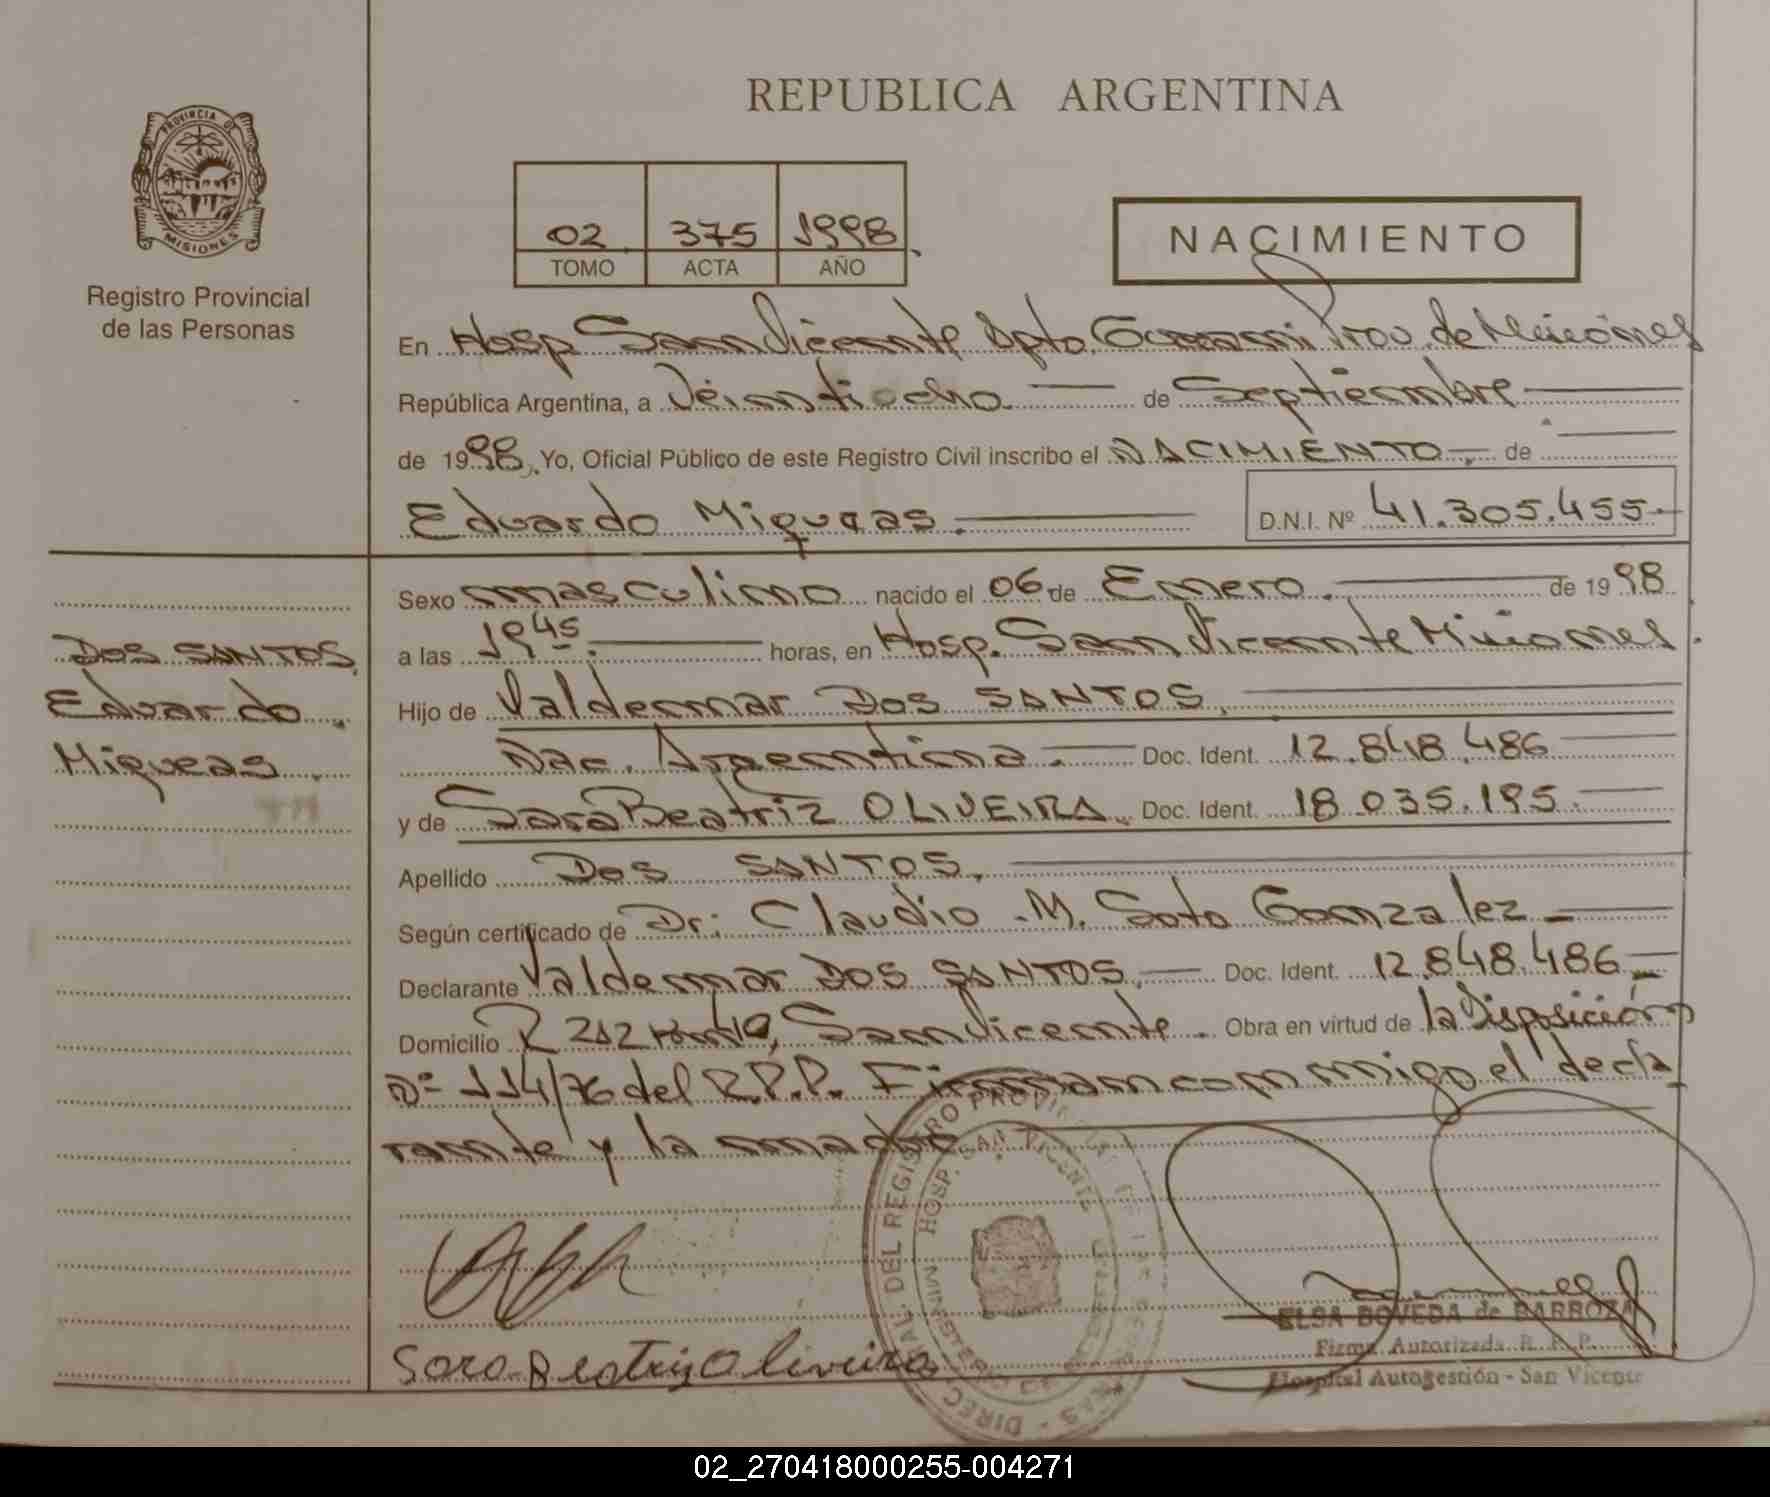 REPUBLICA ARGENTINA
PROVINCIA DE
MISIONES
Registro Provincial
de las Personas
02 375 1998
TOMO ACTA AÑO
NACIMIENTO
En Hosp San Vicente Dpto. Guarani Prov. de Misiones
República Argentina, a Veintiocho de Septiembre
de 1998, Yo, Oficial Público de este Registro Civil inscribo el NACIMIENTO de
Eduardo Miqueas. D.N.I. Nº 41.305.455
Sexo masculino nacido el 06 de Enero. de 1998
a las 19 45. horas, en Hosp. San Vicente Misiones.
Hijo de Valdemar Dos SANTOS.
Nac. Argentina. Doc. Ident. 12.848.486
y de Sara Beatriz OLIVEIRA. Doc. Ident. 18.035.195.
Apellido Dos SANTOS.
Según certificado de Dr: Claudio M. Soto Gonzalez
Declarante Valdemar DOS SANTOS. Doc. Ident. 12.848.486
Domicilio R 212 San Vicente. Obra en virtud de la Disposición
Nº 114/76 del R.P.P. Firman conmigo el decla
rante y la madre
DOS SANTOS
Eduardo
Miqueas.
HOSP. SAN VICENTE
Sara Beatriz Oliveira
ELSA BOVEDA de BARROZA
Firma Autorizada R. P. P.
Hospital Autogestión - San Vicente
02_270418000255-004271